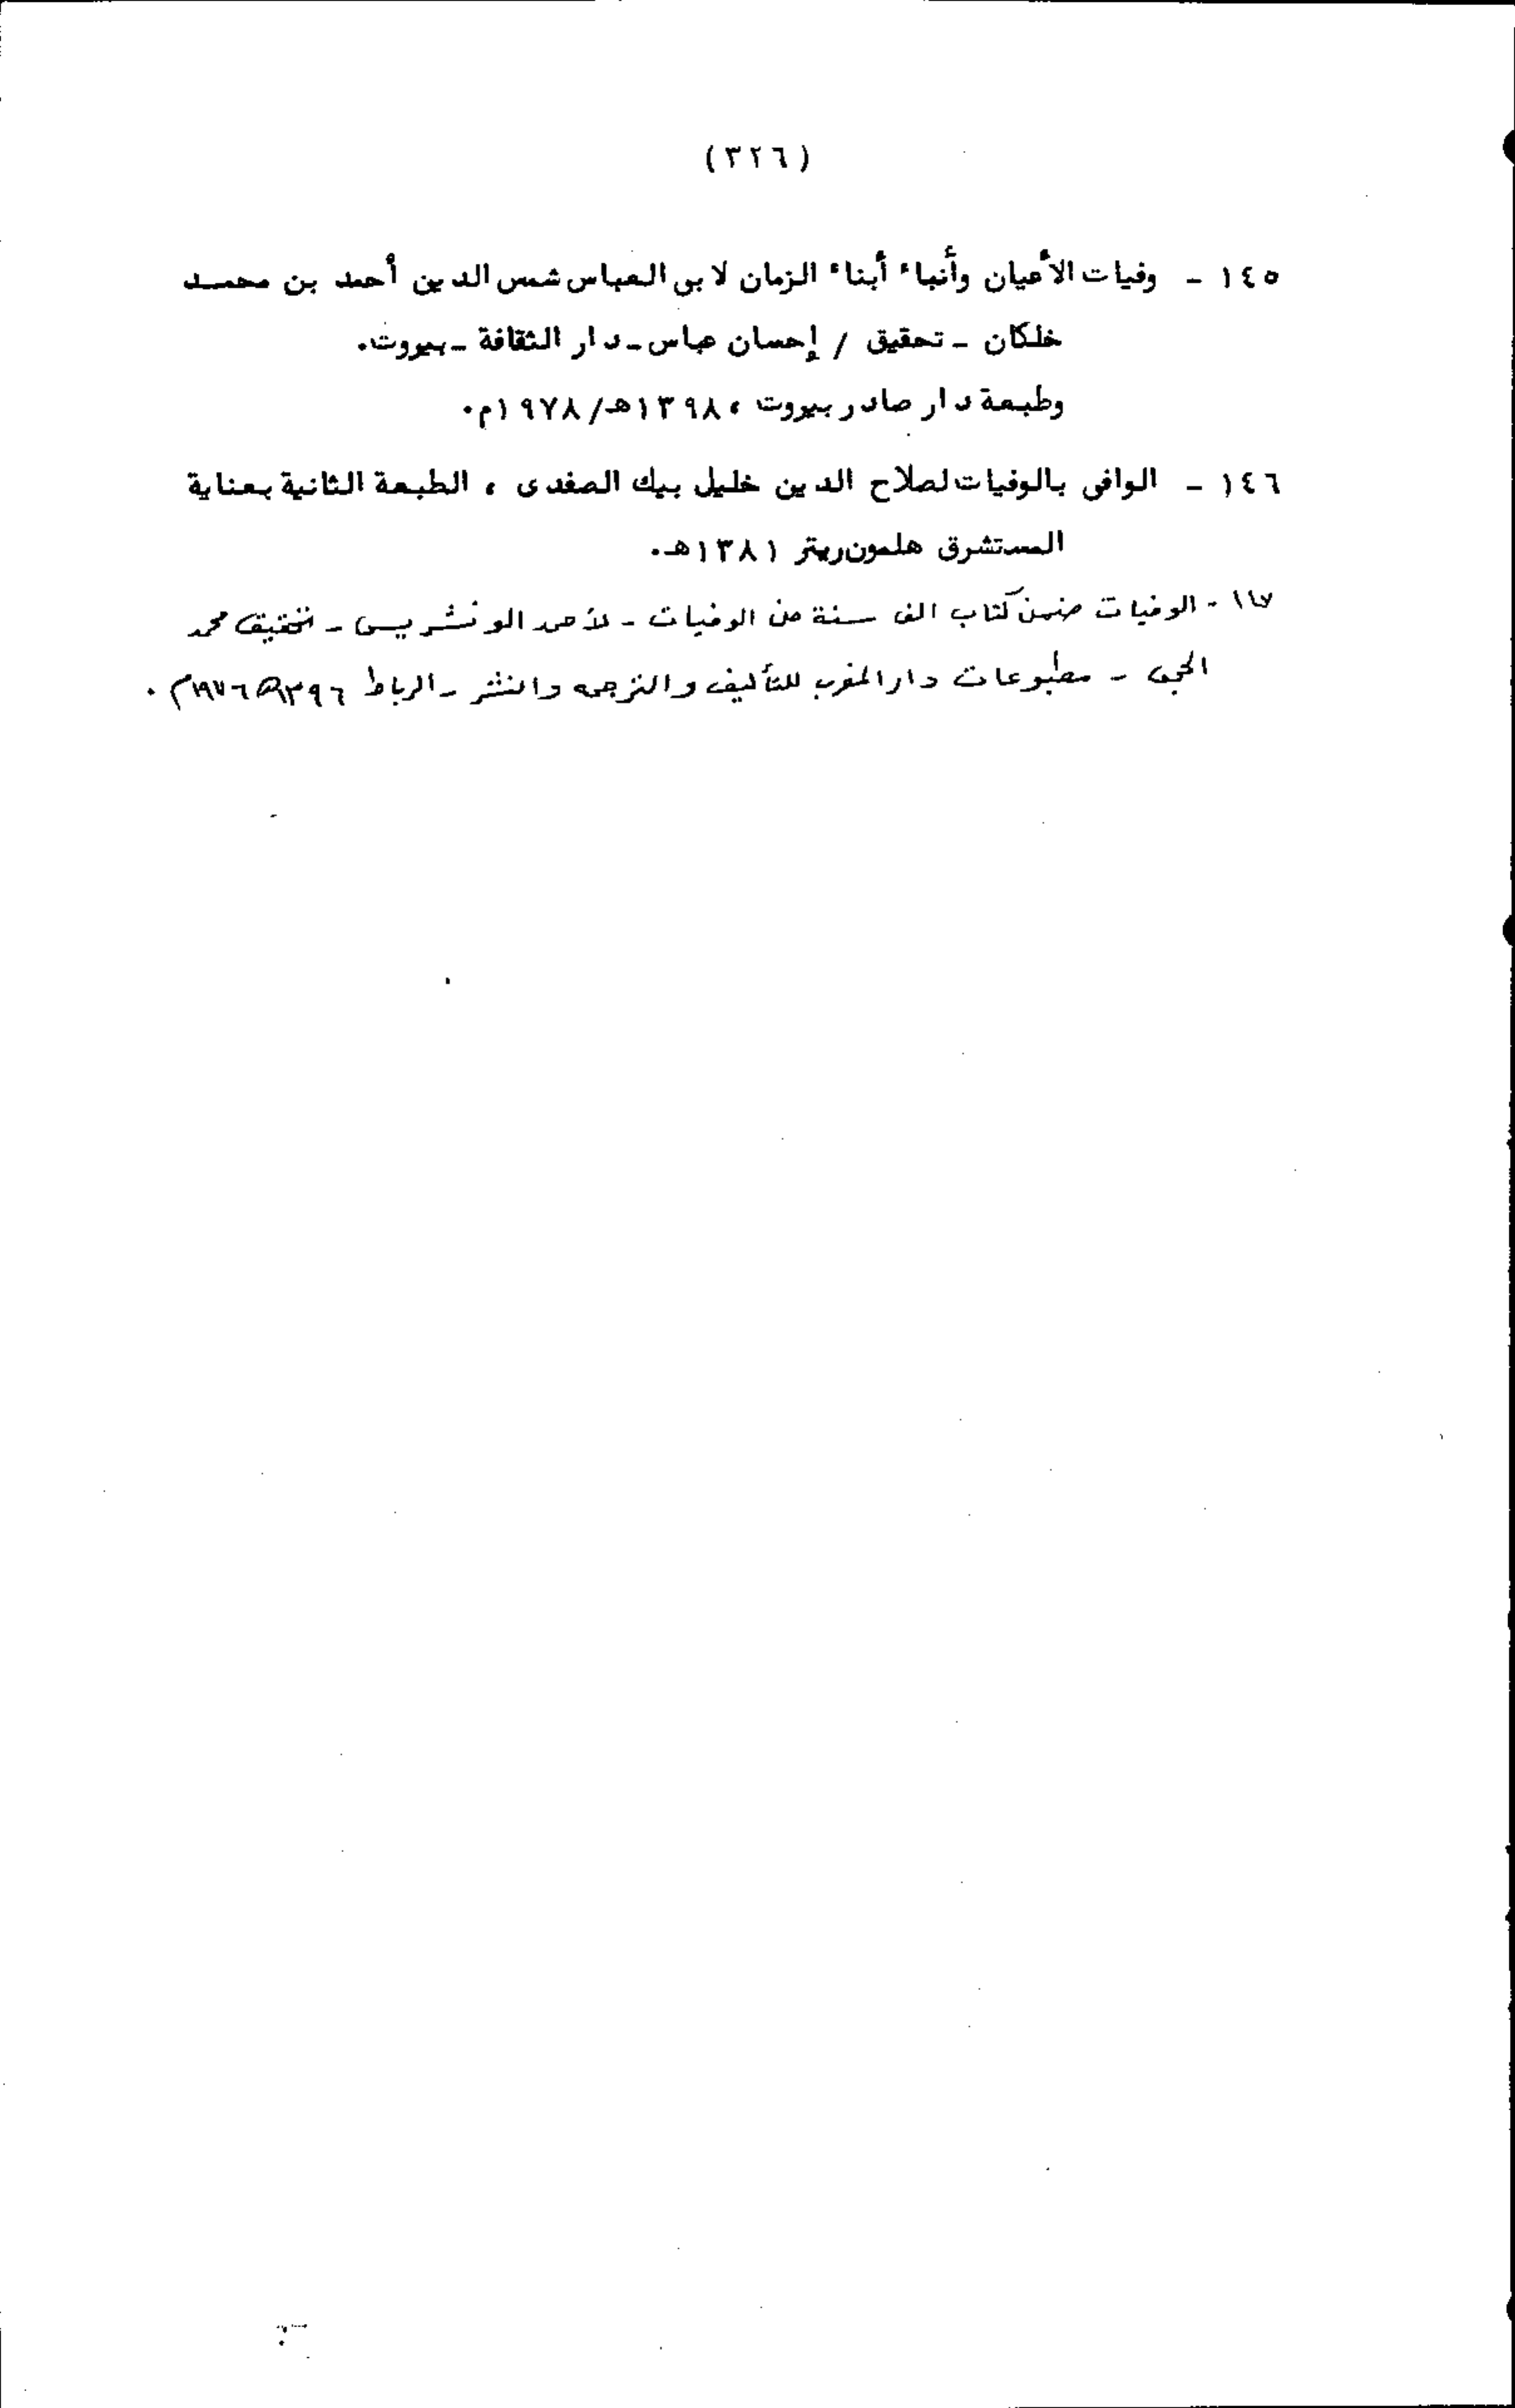 (٣٢٦)
١٤٥ - وفيات الأعيان وأنباء أبناء الزمان لابى العباس شمس الدين أحمد بن محمد
خلكان - تحقيق / إحسان عباس - دار الثقافة - بيروت.
وطبعة دار صادر بيروت ، ١٣٩٨هـ/١٩٧٨م.
١٤٦ - الوافى بالوفيات لصلاح الدين خليل بيك الصفدى ، الطبعة الثانية بعناية
المستشرق هلمون ريتر ١٣٨١هـ.
- الوفيات ضمن كتاب الف سنة من الوفيات - لأحمد الونشريسى - تحقيق محمد
الحجى - مطبوعات دار المغرب للتأليف والترجمه والنشر - الرباط ١٣٩٦هـ ١٩٧٦م.